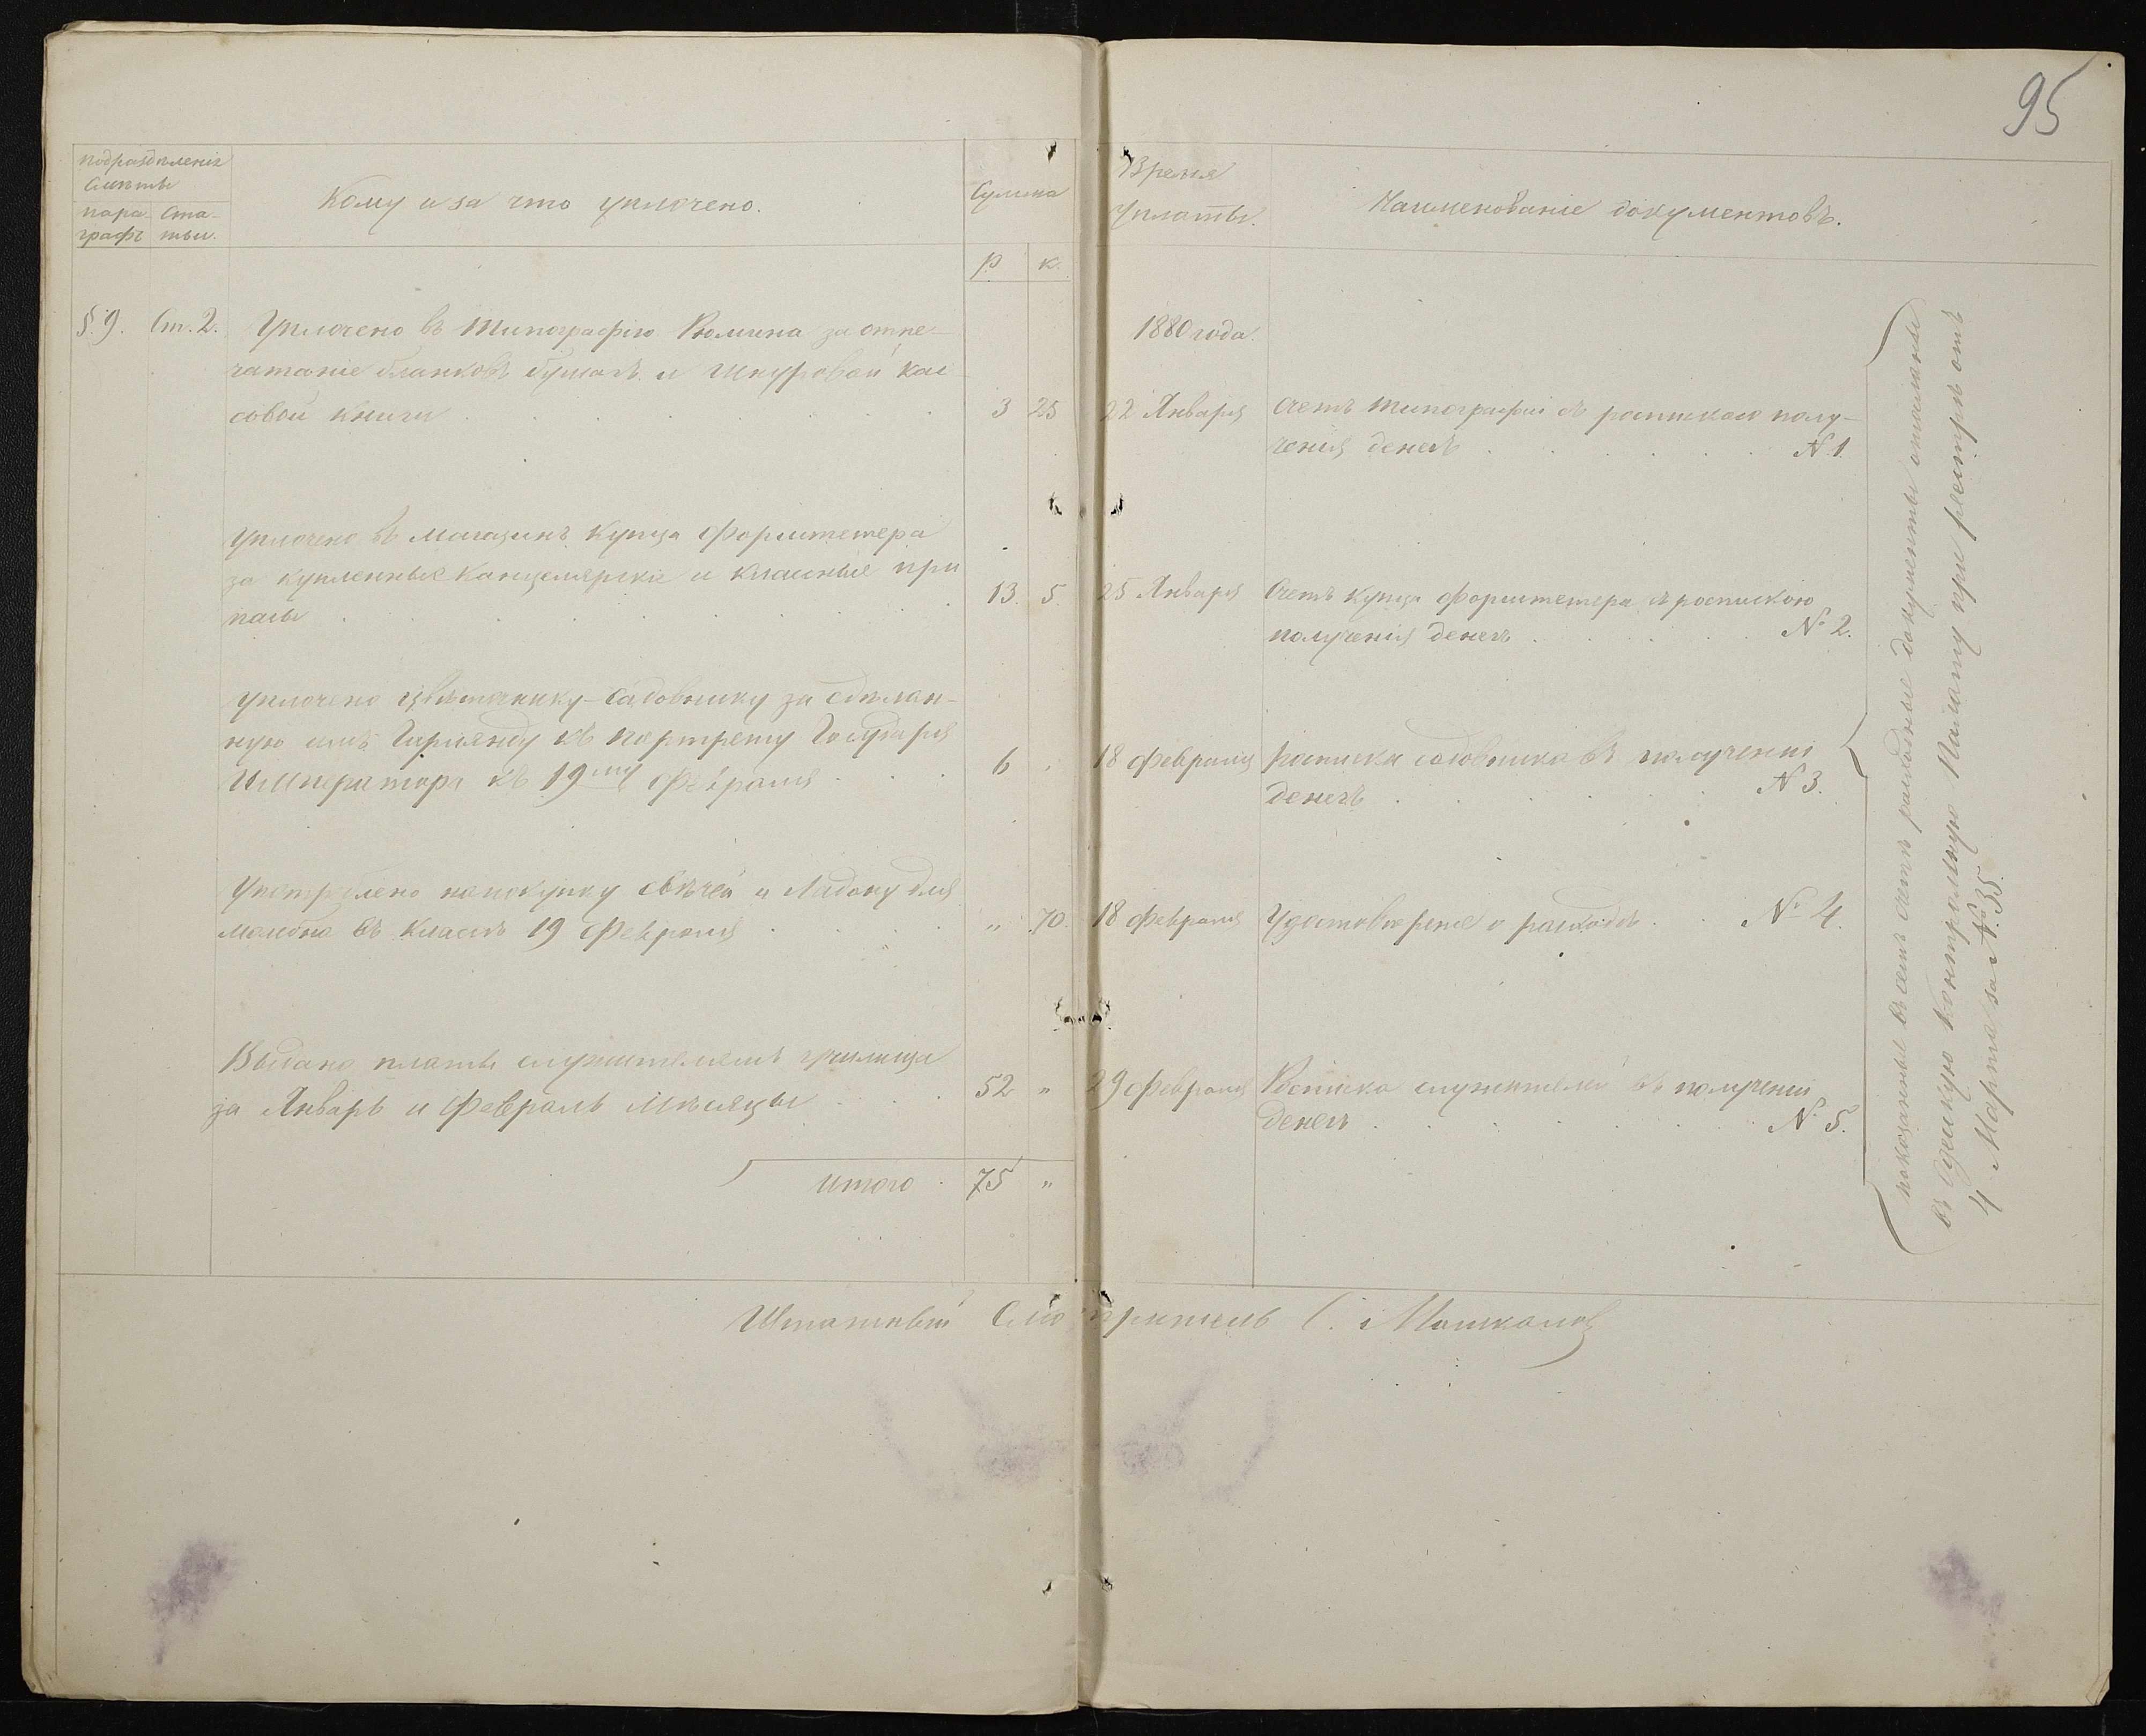 95
подраздѣленія
Смѣты
пара-
графъ
Ста-
тьи.
Кому и за что уплочено.
Сумма
Р
К.
Время
Уплаты.
Наименованіе документовъ.
§.9. Ст. 2. Уплочено въ Типографію Рюмина за отпе-
чатаніе бланковъ бумагъ и Шнуровой кас
совой книги 3 25
1880 года.
22 Января Счетъ типографіи съ роспискою полу-
ченія денегъ № 1.
Уплочено въ магазинъ Купца Форштетера
за купленные Канцелярскіе и Классные при
пасы 13. 5.
25 Января Счетъ купца Форштетера съ роспискою
полученія денегъ № 2.
Уплочено цвѣточнику-Садовнику за сдѣлан-
ную имъ Гирлянду къ портрету Государя
Императора къ 19му Февраля 6
18 Февраля росписка садовника въ полученіи
денегъ № 3.
Употреблено на покупку свѣчей и Ладону для
молебна въ классѣ 19 Февраля „ 70.
18 Февраля Удостовѣреніе о расходѣ № 4.
Выдано платы служителямъ училища
за Январь и Февраль Мѣсяцы 52 „
29 Февраля Росписка служителей въ полученіи
денегъ № 5.
Итого 75 „
показанные въ семъ счетѣ расходные документы отосланы
въ Одесскую Контрольную Палату при реестрѣ отъ
4 Марта за № 35.
Штатный Смотритель С. Машкалов